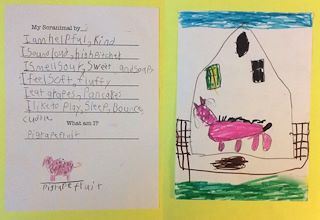 My Scranimal by
I am helpful, kind
I sound loud, high pitched
I smell sour, sweet and soapy
I feel soft, fluffy
I eat grapes, pancakes
I like to play, sleep, Bounce,
cuddle
What am I?
Pigrapefruit
Pigrapefruit